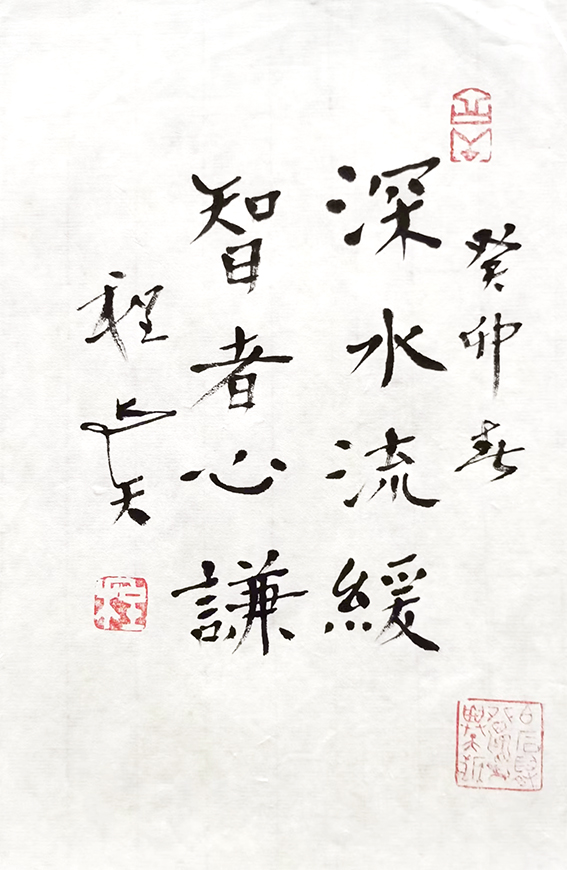 癸卯春
深水流緩
智者心謙
程天